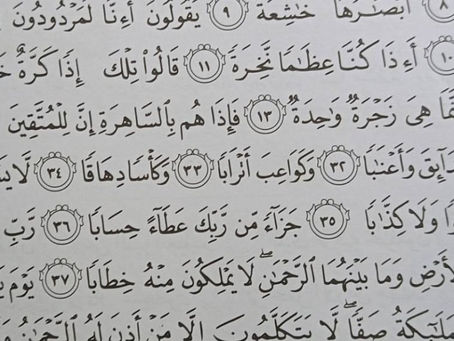 ٨ أَبْصَٰرُهَا خَٰشِعَةٌ ٩ يَقُولُونَ أَءِنَّا لَمَرْدُودُونَ
١٠ أَءِذَا كُنَّا عِظَٰمًا نَّخِرَةً ١١ قَالُوا۟ تِلْكَ إِذًا كَرَّةٌ
هِىَ زَجْرَةٌ وَٰحِدَةٌ ١٣ فَإِذَا هُم بِٱلسَّاهِرَةِ إِنَّ لِلْمُتَّقِينَ
دَآئِقَ وَأَعْنَٰبًا ٣٢ وَكَوَاعِبَ أَتْرَابًا ٣٣ وَكَأْسًا دِهَاقًا ٣٤ لَّا
وَلَا كِذَّٰبًا ٣٥ جَزَآءً مِّن رَّبِّكَ عَطَآءً حِسَابًا ٣٦ رَّبِّ
لْأَرْضِ وَمَا بَيْنَهُمَا ٱلرَّحْمَٰنِ ۖ لَا يَمْلِكُونَ مِنْهُ خِطَابًا ٣٧ يَوْمَ
مَلَٰٓئِكَةُ صَفًّا ۖ لَّا يَتَكَلَّمُونَ إِلَّا مَنْ أَذِنَ لَهُ ٱلرَّحْمَٰنُ